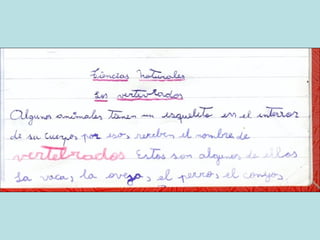 Ciencias Naturales
Los vertebrados
Algunos animales tienen un esqueleto en el interior
de su cuerpo por eso, reciben el nombre de
vertebrados Estos son algunos de ellos
La vaca, la oveja, el perro, el conejo,